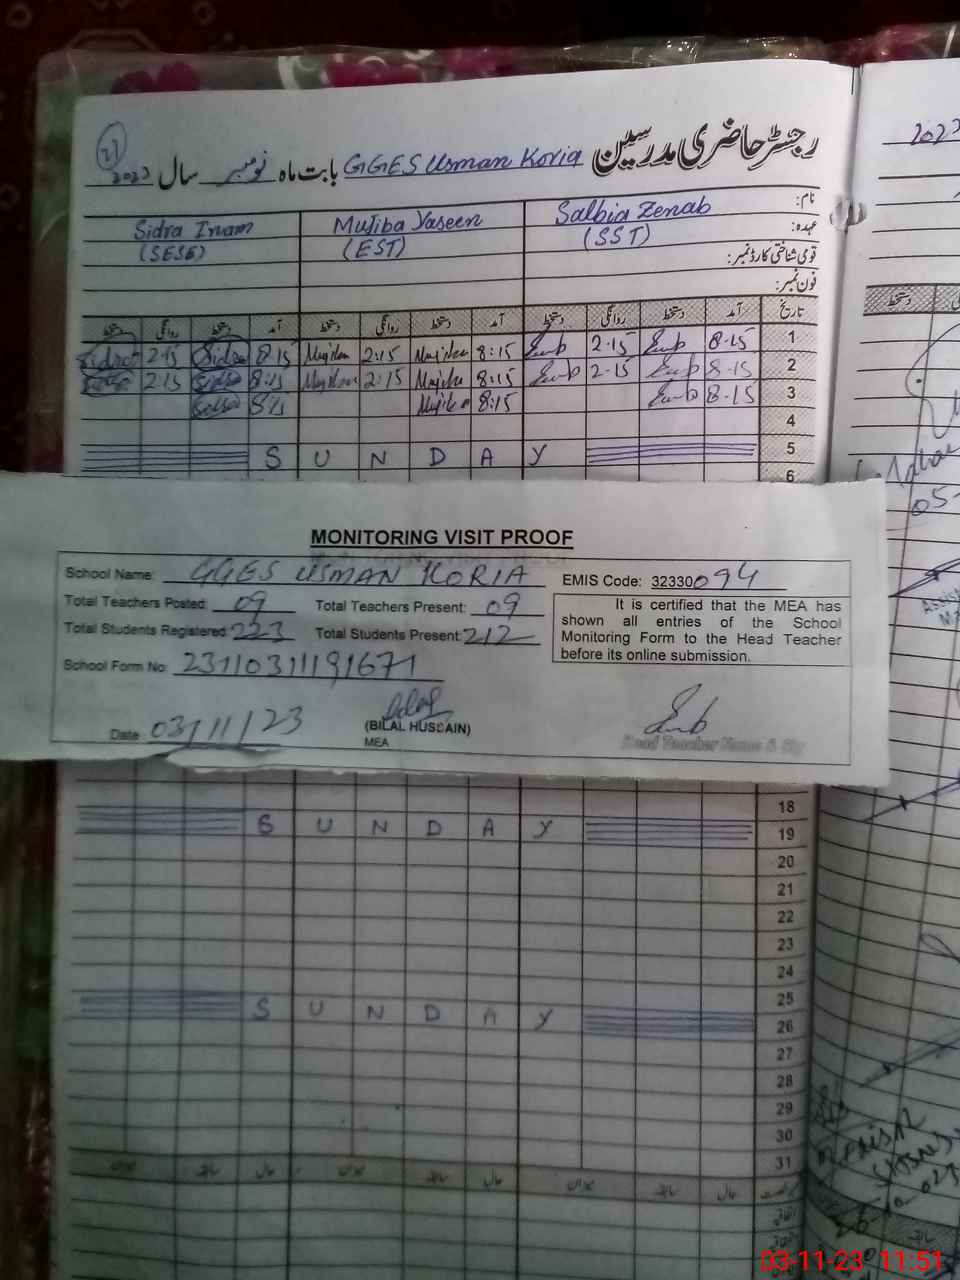 21
رجسٹر حاضری مدرسین GGES Usman Koria بابت ماہ نومبر سال 2023
نام: Salbia Zenab Mujiba Yaseen Sidra Inam
عہدہ: (SST) (EST) (SESE)
قومی شناختی کارڈ نمبر:
فون نمبر:
تاریخ آمد دستخط روانگی دستخط آمد دستخط روانگی دستخط آمد دستخط روانگی دستخط
1 8-15 2-15 8:15 2:15 8:15 2:15
2 8-15 2-15 8:15 2:15 8:15 2:15
3 8-15 8:15 8:15
4
SUNDAY 5
6
MONITORING VISIT PROOF
School Name: GGES USMAN KORIA EMIS Code: 32330094
Total Teachers Posted: 09 Total Teachers Present: 09
Total Students Registered: 223 Total Students Present: 212
School Form No: 23110311191671
It is certified that the MEA has
shown all entries of the School
Monitoring Form to the Head Teacher
before its online submission.
Date 03/11/23
(BILAL HUSSAIN)
MEA
Head Teacher Name & Sig
18
SUNDAY 19
20
21
22
23
24
25
SUNDAY 26
27
28
29
30
31
میزان سابقہ حال میزان سابقہ حال میزان سابقہ حال
2023
05-
03-11-23 11:51